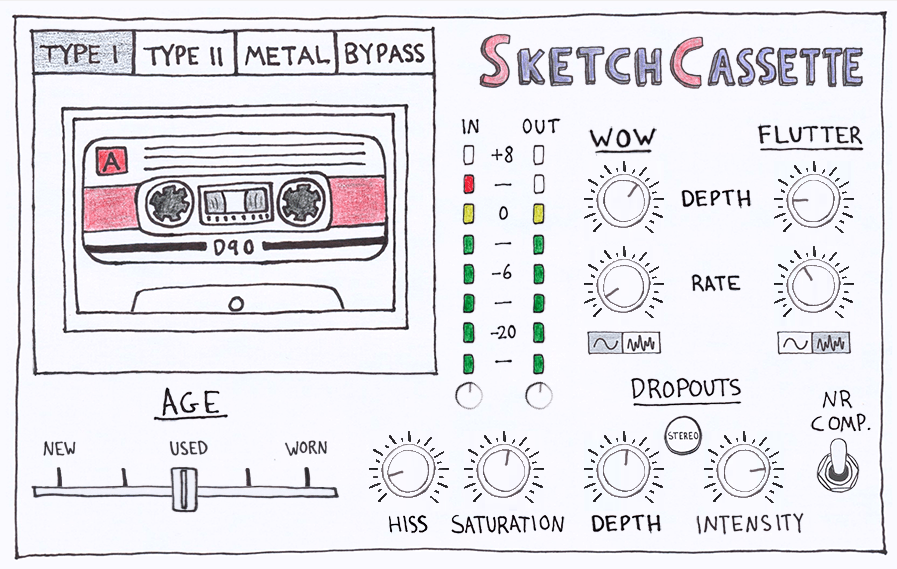 TYPE I TYPE II METAL BYPASS
SKETCHCASSETTE
A
D90
IN OUT
+8
0
-6
-20
WOW
FLUTTER
DEPTH
RATE
AGE
NEW USED WORN
DROPOUTS
STEREO
NR
COMP.
HISS SATURATION DEPTH INTENSITY